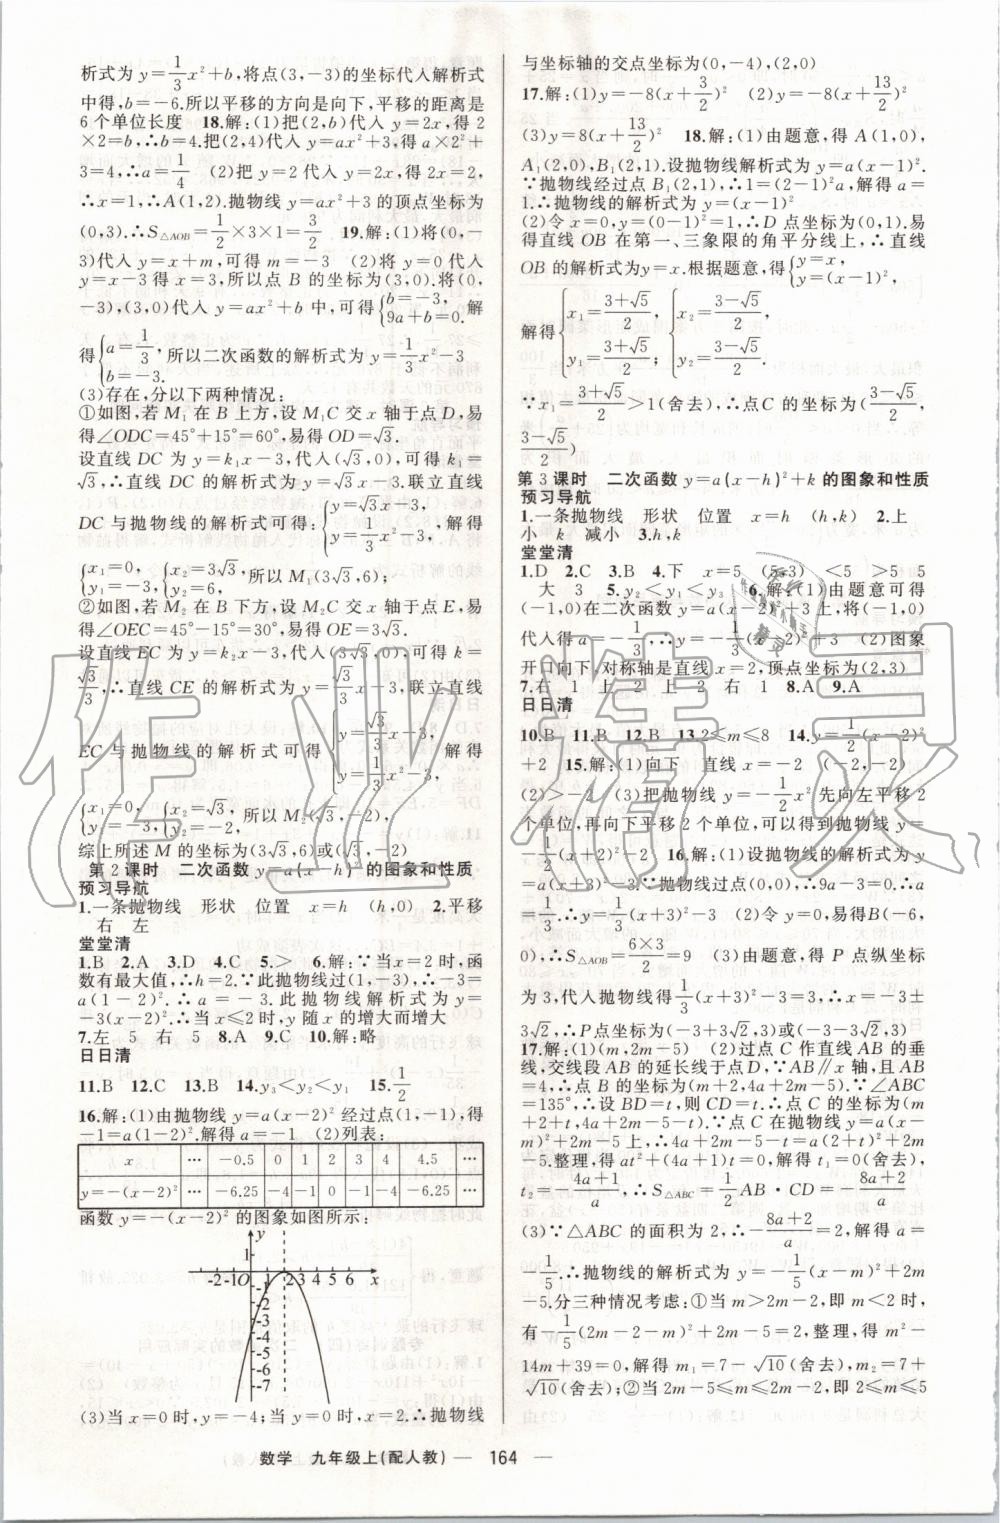 析式为 y=1/3x²+b,将点(3,-3)的坐标代入解析式
中得,b=-6.所以平移的方向是向下,平移的距离是
6个单位长度 18.解:(1)把(2,b)代入 y=2x,得 2
×2=b,∴b=4.把(2,4)代入 y=ax²+3,得 a×2²+
3=4,∴a=1/4 (2)把 y=2 代入 y=2x,得 2x=2,
∴x=1,∴A(1,2).抛物线 y=ax²+3 的顶点坐标为
(0,3).∴S△AOB=1/2×3×1=3/2 19.解:(1)将(0,-
3)代入 y=x+m,可得 m=-3 (2)将 y=0 代入
y=x-3 得 x=3,所以点 B 的坐标为(3,0).将(0,
-3),(3,0)代入 y=ax²+b 中,可得{b=-3, 9a+b=0. 解
得{a=1/3, b=-3. 所以二次函数的解析式为 y=1/3x²-3
(3)存在,分以下两种情况:
①如图,若 M₁ 在 B 上方,设 M₁C 交 x 轴于点 D,易
得∠ODC=45°+15°=60°,易得 OD=√3.
设直线 DC 为 y=k₁x-3,代入(√3,0),可得 k=
√3,∴直线 DC 的解析式为 y=√3x-3.联立直线
DC 与抛物线的解析式可得:{y=√3x-3, y=1/3x²-3, 解得:
{x₁=0, y₁=-3, {x₂=3√3, y₂=6, 所以 M₁(3√3,6);
②如图,若 M₂ 在 B 下方,设 M₂C 交 x 轴于点 E,易
得∠OEC=45°-15°=30°,易得 OE=3√3.
设直线 EC 为 y=k₂x-3,代入(3√3,0),可得 k=
√3/3,∴直线 CE 的解析式为 y=√3/3x-3,联立直线
EC 与抛物线的解析式可得{y=√3/3x-3, y=1/3x²-3, 解得:
{x₁=0, y₁=-3, {x₂=√3, y₂=-2, 所以 M₂(√3,-2),
综上所述 M 的坐标为(3√3,6)或(√3,-2)
第 2 课时 二次函数 y=a(x-h)² 的图象和性质
预习导航
1.一条抛物线 形状 位置 x=h (h,0) 2.平移
右 左
堂堂清
1.B 2.A 3.D 4.C 5.> 6.解:∵当 x=2 时,函
数有最大值,∴h=2.∵此抛物线过(1,-3),∴-3=
a(1-2)².∴a=-3.此抛物线解析式为 y=
-3(x-2)².∴当 x≤2 时,y 随 x 的增大而增大
7.左 5 右 5 8.A 9.C 10.解:略
日日清
11.B 12.C 13.B 14.y₃<y₂<y₁ 15.1/2
16.解:(1)由抛物线 y=a(x-2)² 经过点(1,-1),得
-1=a(1-2)².解得 a=-1 (2)列表:
x … -0.5 0 1 2 3 4 4.5 …
y=-(x-2)² … -6.25 -4 -1 0 -1 -4 -6.25 …
函数 y=-(x-2)² 的图象如图所示:
y
1
-2 -1 O 1 2 3 4 5 6 x
-1
-2
-3
-4
-5
-6
-7
(3)当 x=0 时,y=-4;当 y=0 时,x=2.∴抛物线
与坐标轴的交点坐标为(0,-4),(2,0)
17.解:(1)y=-8(x+3/2)² (2)y=-8(x+13/2)²
(3)y=8(x+13/2)² 18.解:(1)由题意,得 A(1,0),
A₁(2,0),B₁(2,1).设抛物线解析式为 y=a(x-1)².
∵抛物线经过点 B₁(2,1),∴1=(2-1)²a,解得 a=
1.∴抛物线的解析式为 y=(x-1)²
(2)令 x=0,y=(0-1)²=1,∴D 点坐标为(0,1).易
得直线 OB 在第一、三象限的角平分线上,∴直线
OB 的解析式为 y=x.根据题意,得{y=x, y=(x-1)²,
解得{x₁=(3+√5)/2, y₁=(3+√5)/2, {x₂=(3-√5)/2, y₂=(3-√5)/2.
∵x₁=(3+√5)/2>1(舍去),∴点 C 的坐标为((3-√5)/2,
(3-√5)/2)
第 3 课时 二次函数 y=a(x-h)²+k 的图象和性质
预习导航
1.一条抛物线 形状 位置 x=h (h,k) 2.上
小 k 减小 3.h,k
堂堂清
1.D 2.C 3.B 4.下 x=5 (5,3) <5 >5 5
大 3 5.y₂<y₁<y₃ 6.解:(1)由题意可得
(-1,0)在二次函数 y=a(x-2)²+3 上,将(-1,0)
代入得 a=-1/3.∴y=-1/3(x-2)²+3 (2)图象
开口向下,对称轴是直线 x=2,顶点坐标为(2,3)
7.右 1 上 2 上 2 右 1 8.A 9.A
日日清
10.B 11.B 12.B 13.2≤m≤8 14.y=-1/2(x-2)²
+2 15.解:(1)向下 直线 x=-2 (-2,-2)
(2)>-2 (3)把抛物线 y=-1/2x² 先向左平移 2
个单位,再向下平移 2 个单位,可以得到抛物线 y=
-1/2(x+2)²-2 16.解:(1)设抛物线的解析式为 y
=a(x+3)²-3.∵抛物线过点(0,0),∴9a-3=0.∴a
=1/3.∴y=1/3(x+3)²-3 (2)令 y=0,易得 B(-6,
0),∴S△AOB=(6×3)/2=9 (3)由题意,得 P 点纵坐标
为 3,代入抛物线得 1/3(x+3)²-3=3,∴x=-3±
3√2,∴P 点坐标为(-3+3√2,3)或(-3-3√2,3)
17.解:(1)(m,2m-5) (2)过点 C 作直线 AB 的垂
线,交线段 AB 的延长线于点 D,∵AB∥x 轴,且 AB
=4,∴点 B 的坐标为(m+2,4a+2m-5).∵∠ABC=
135°,∴设 BD=t,则 CD=t,∴点 C 的坐标为(m
+2+t,4a+2m-5-t).∵点 C 在抛物线 y=a(x-
m)²+2m-5 上,∴4a+2m-5-t=a(2+t)²+2m
-5.整理,得 at²+(4a+1)t=0,解得 t₁=0(舍去),
t₂=-(4a+1)/a,∴S△ABC=1/2AB·CD=-(8a+2)/a
(3)∵△ABC 的面积为 2,∴-(8a+2)/a=2,解得 a=
-1/5.∴抛物线的解析式为 y=-1/5(x-m)²+2m
-5.分三种情况考虑:①当 m>2m-2,即 m<2 时,
有-1/5(2m-2-m)²+2m-5=2,整理,得 m²-
14m+39=0,解得 m₁=7-√10(舍去),m₂=7+
√10(舍去);②当 2m-5≤m≤2m-2,即 2≤m≤5
数学 九年级上(配人教) — 164 —
作业精灵